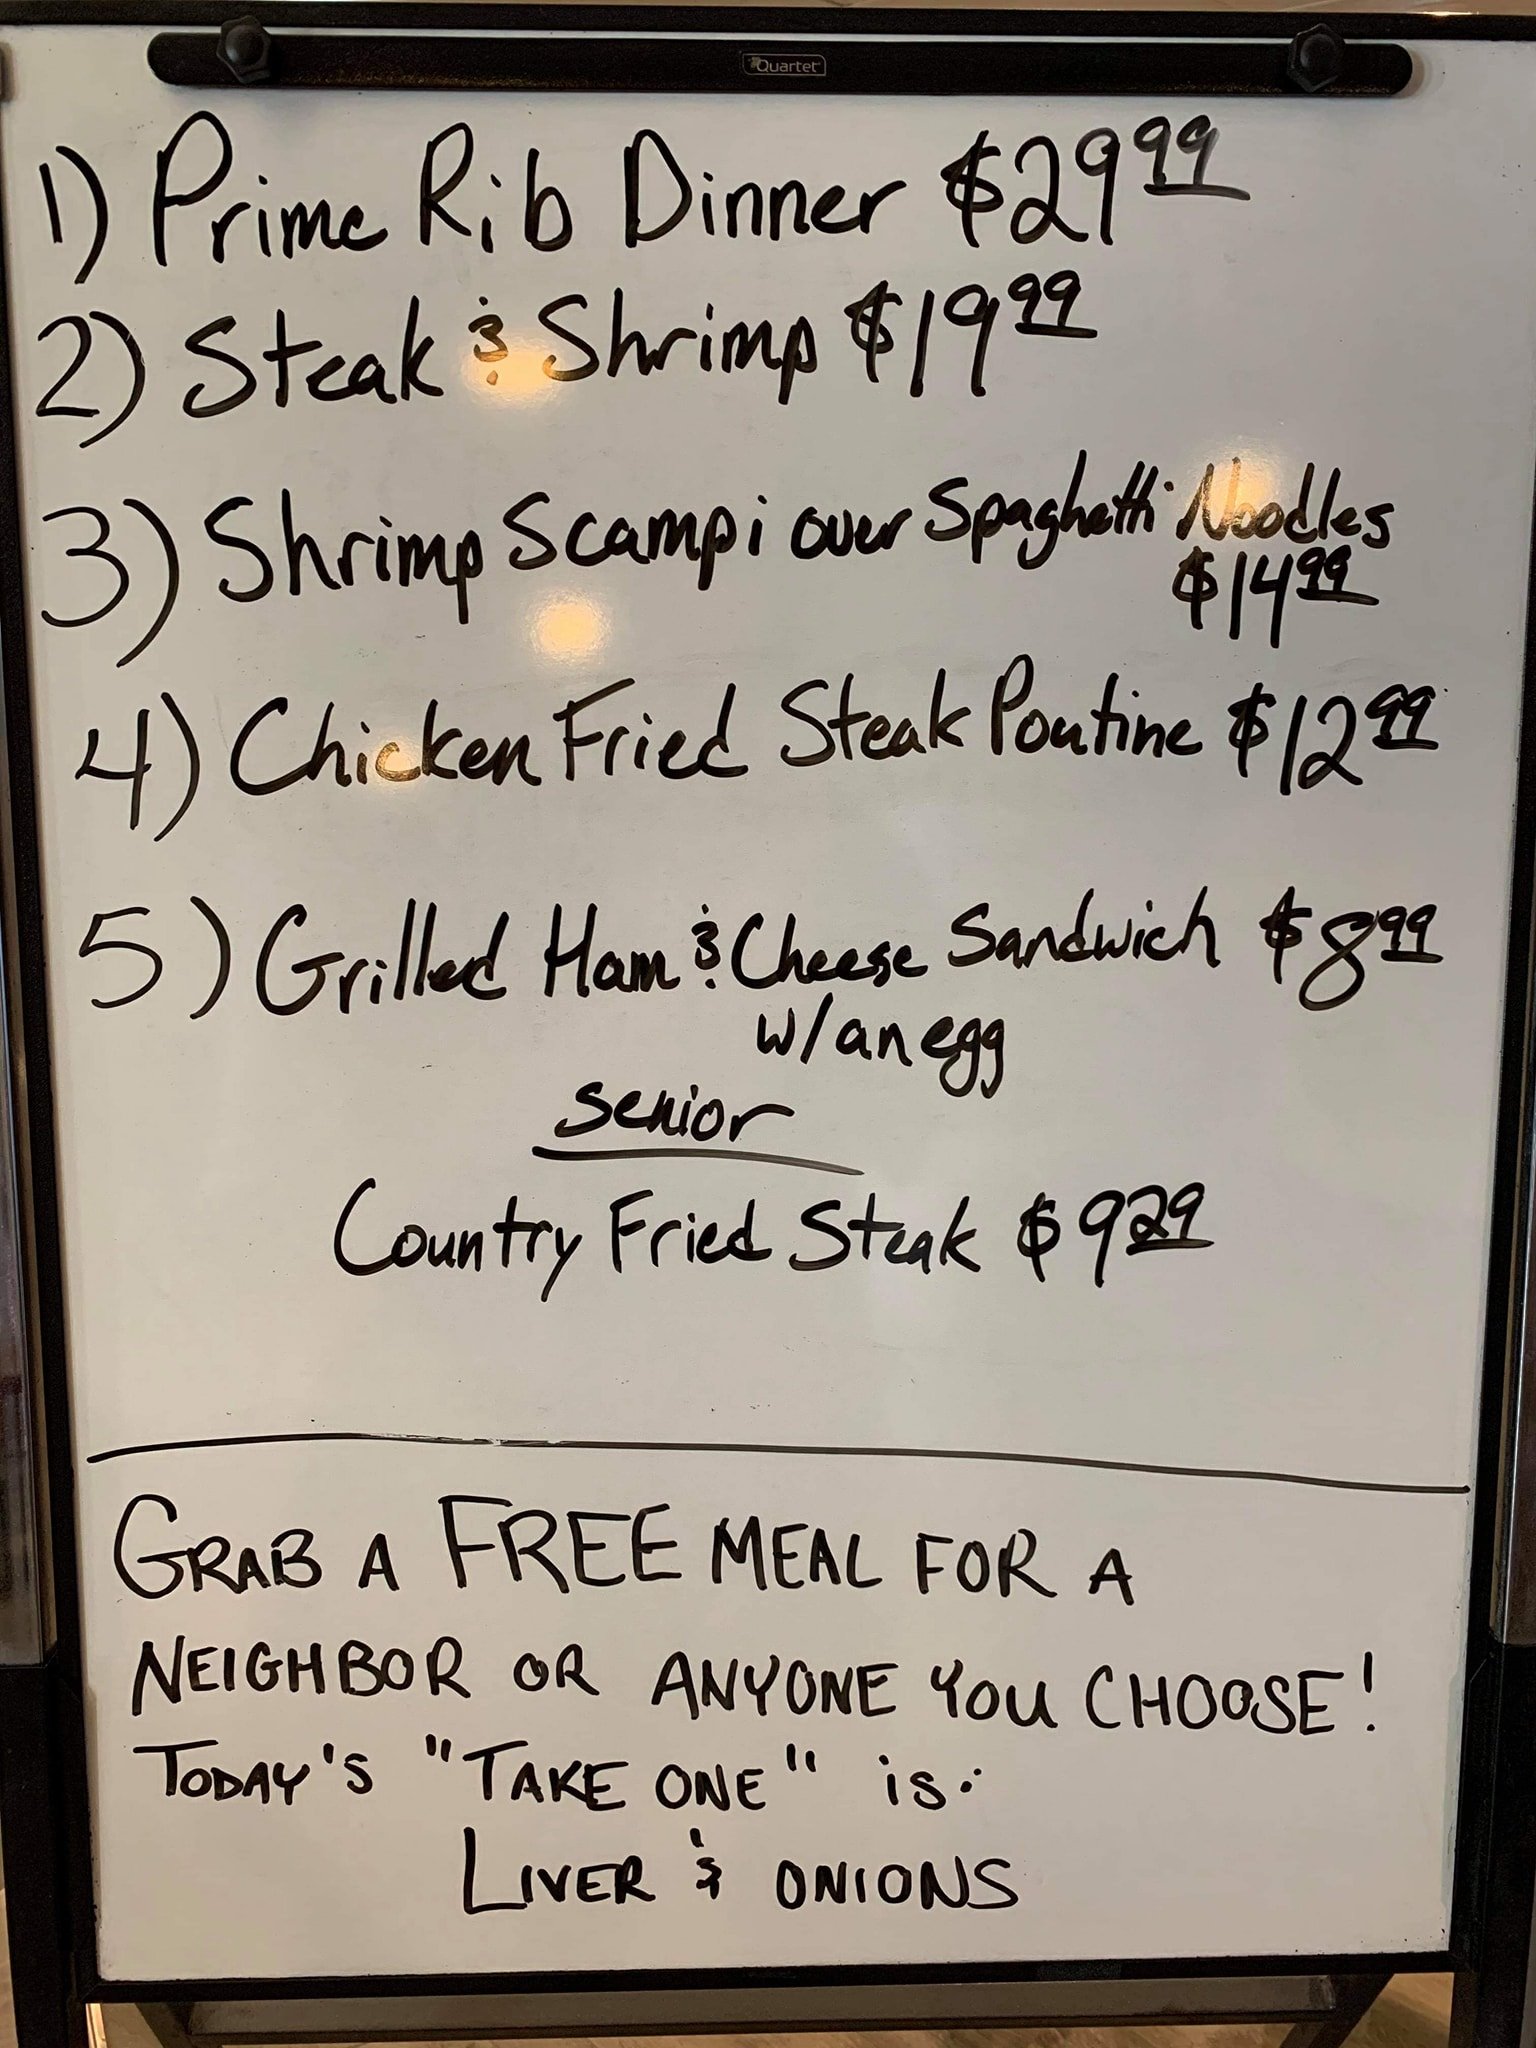 Quartet
1) Prime Rib Dinner $29.99
2) Steak & Shrimp $19.99
3) Shrimp Scampi over Spaghetti Noodles
$14.99
4) Chicken Fried Steak Poutine $12.99
5) Grilled Ham & Cheese Sandwich $8.99
w/an egg
Senior
Country Fried Steak $9.29
GRAB A FREE MEAL FOR A
NEIGHBOR OR ANYONE YOU CHOOSE!
TODAY'S "TAKE ONE" is:
LIVER & ONIONS